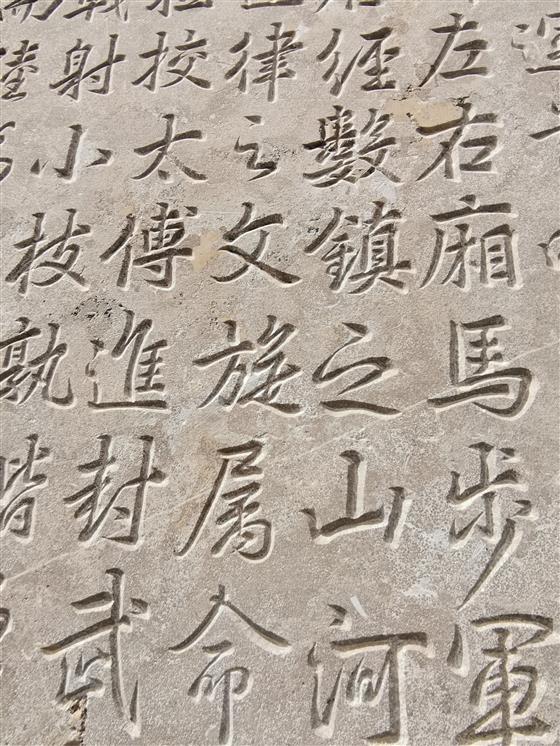 左右廂馬步軍
經數鎮之山河
律之文旋属命
挍太傅進封武
射小枝孰